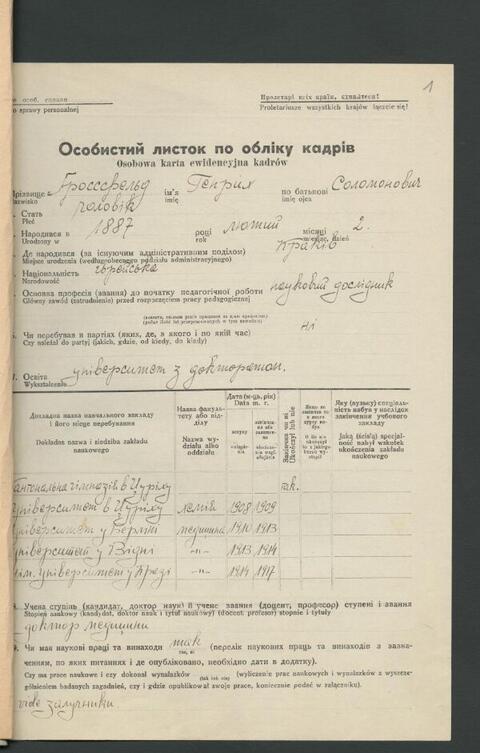 1
особ. справи
o sprawy personalnej
Пролетарі всіх країн, єднайтеся!
Proletariusze wszystkich krajów łączcie się!
Особистий листок по обліку кадрів
Osobowa karta ewidencyjna kadrów
Прізвище Гроссфельд ім'я Генрих по батькові Соломонович
Nazwisko imię imię ojca
Стать чоловік
Płeć
Народився в 1887 році лютий місяці 2.
Urodzony w rok miesiąc, dzień
Де народився (за існуючим адміністративним поділом) Краків
Miejsce urodzenia (według obecnego podziału administracyjnego)
Національність єврейська
Narodowość
Основна професія (звання) до початку педагогічної роботи науковий дослідник
Główny zawód (zatrudnienie) przed rozpoczęciem pracy pedagogicznej
Чи перебував в партіях (яких, де, в якого і по який час) ні
Czy należał do partyj (jakich, gdzie, od kiedy, do kiedy)
Освіта університет з докторатом.
Wykształcenie
Докладна назва навчального закладу і його місце перебування
Dokładna nazwa i siedziba zakładu naukowego
Назва факультету або відділу
Nazwa wydziału albo oddziału
Дата (м-ць, рік)
Data m. r.
вступу
Закінчив чи ні
Ukończył lub nie
Яку (вузьку) спеціальність набув у наслідок закінчення учбового закладу
Jaką (ścisłą) specjalność nabył wskutek ukończenia zakładu naukowego
Кантональна гімназія в Цуріху так.
Університет в Цуріху хемія 1908 1909
Університет у Берні медицина 1910 1913
Університет у Відні -"- 1913 1914
Нім. університет у Празі -"- 1914 1917
8. Учена ступінь (кандидат, доктор наук) й учене звання (доцент, професор) ступені і звання
Stopień naukowy (kandydat, doktor nauk i tytuł naukowy) (docent, profesor) stopnie i tytuły
доктор медицини
9. Чи має наукові праці та винаходи так (перелік наукових праць та винаходів з зазначенням, по яких питаннях і де опубліковано, необхідно дати в додатку).
Czy ma prace naukowe i czy dokonał wynalazków (tak lub nie) (wyliczenie prac naukowych i wynalazków z wyszczególnieniem badanych zagadnień, czy i gdzie opublikował swoje prace, koniecznie podać w załączniku).
vide залучники